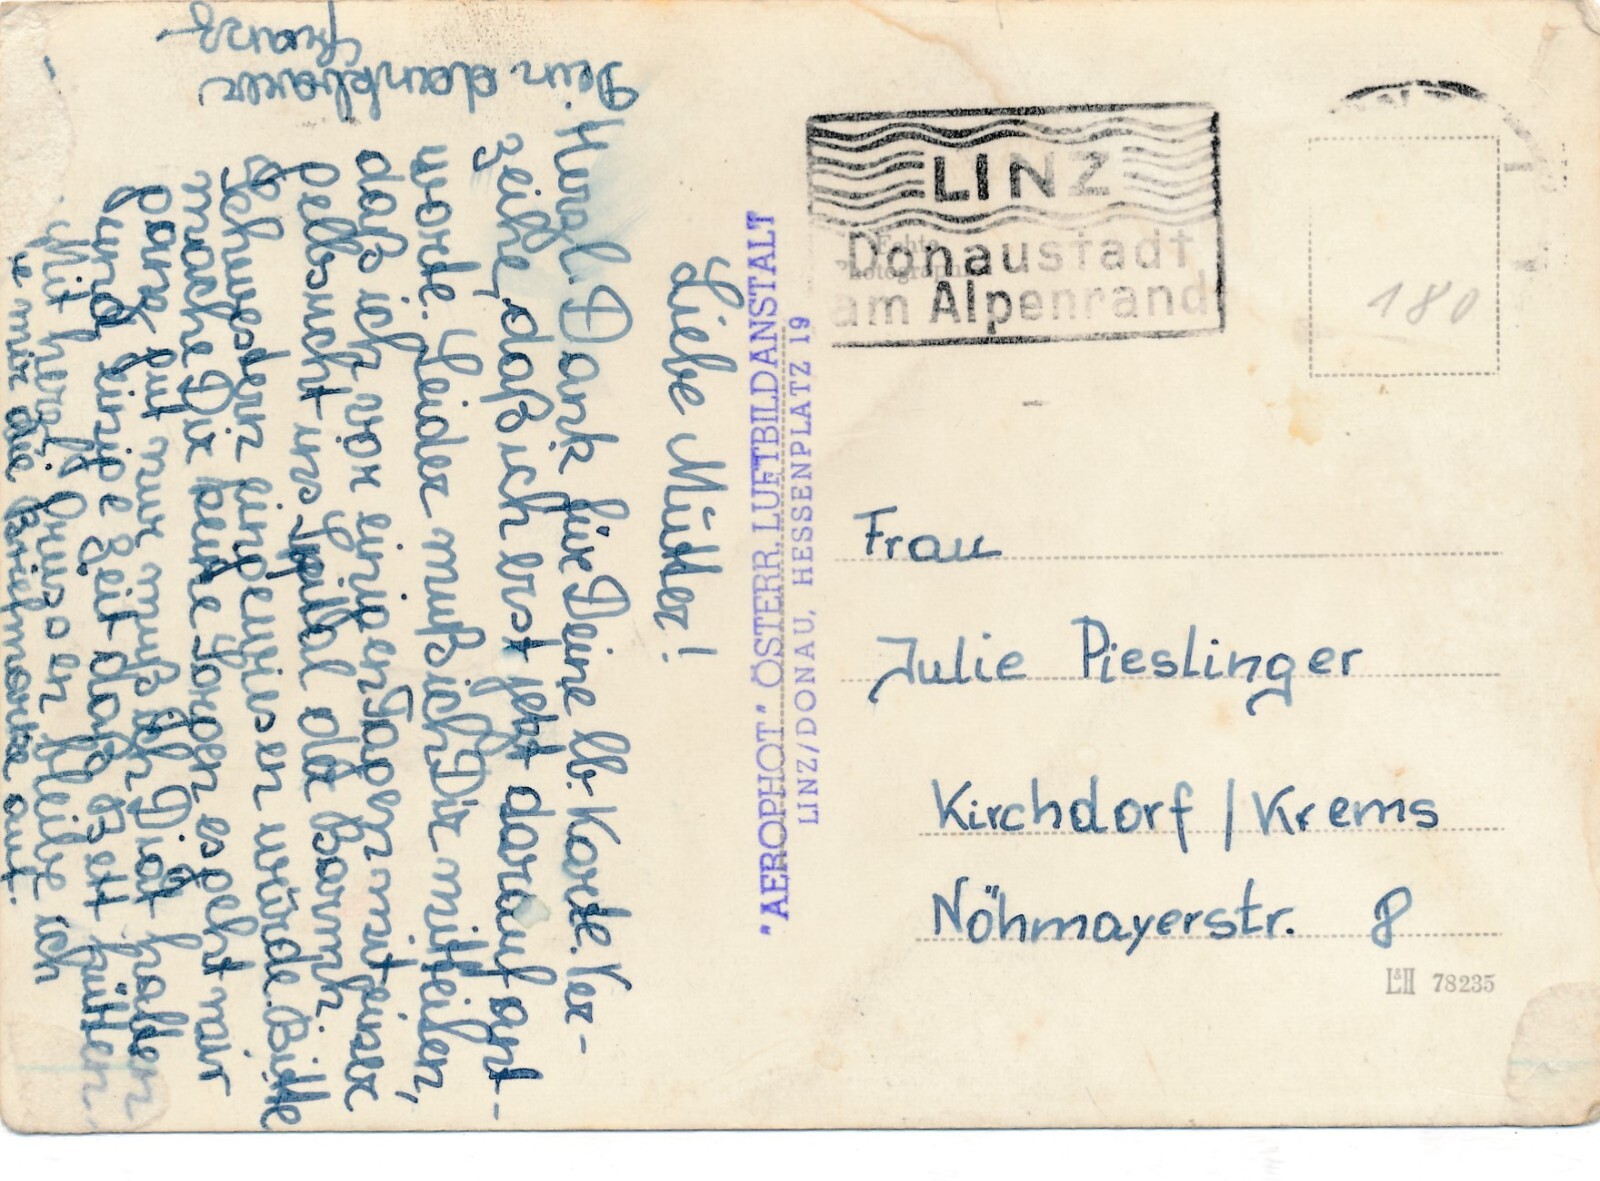 Liebe Mutter!
Herzl. Dank für Deine lb. Karte. Ver-
zeihe, daß ich erst jetzt darauf ant-
worte. Leider muß ich Dir mitteilen,
daß ich vor einigen Tagen mit einer
Gelbsucht ins Spital der Barmh.
Schwestern eingewiesen würde. Bitte
mache Dir keine Sorgen es geht mir
ganz gut nur muß ich Diät halten
und einige Zeit das Bett hüten.
Mit herzl. Grüssen bleibe ich
Dein dankbarer
Franz
mir die Briefmarke auf.
"AEROPHOT" ÖSTERR. LUFTBILDANSTALT
LINZ/DONAU, HESSENPLATZ 19
LINZ
Donaustadt
am Alpenrand
Echte
Photographie
180
Frau
Julie Pieslinger
Kirchdorf / Krems
Nöhmayerstr. 8
L&H 78235